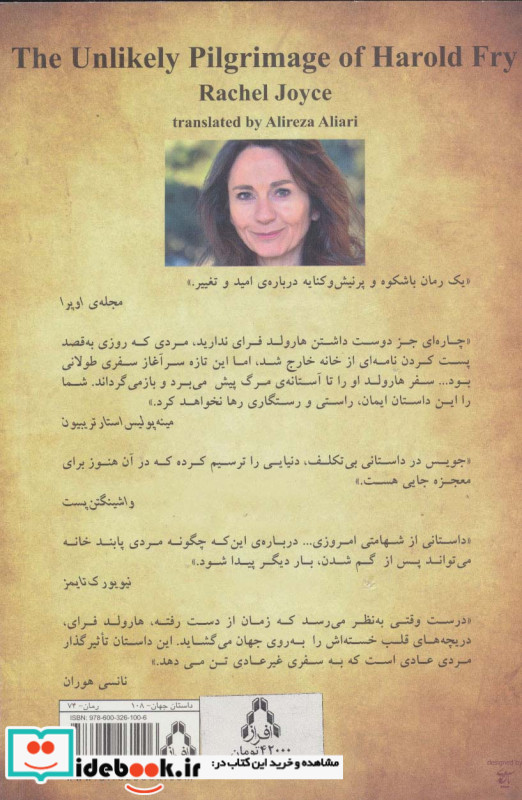 The Unlikely Pilgrimage of Harold Fry
Rachel Joyce
translated by Alireza Aliari
«یک رمان باشکوه و پرنیش‌وکنایه درباره‌ی امید و تغییر.»
مجله‌ی اوپرا
«چاره‌ای جز دوست داشتن هارولد فرای ندارید، مردی که روزی به‌قصد
پست کردن نامه‌ای از خانه خارج شد، اما این تازه سرآغاز سفری طولانی
بود... سفر هارولد او را تا آستانه‌ی مرگ پیش می‌برد و بازمی‌گرداند. شما
را این داستان ایمان، راستی و رستگاری رها نخواهد کرد.»
مینه‌پولیس استار تریبیون
«جویس در داستانی بی‌تکلف، دنیایی را ترسیم کرده که در آن هنوز برای
معجزه جایی هست.»
واشینگتن‌پست
«داستانی از شهامتی امروزی... درباره‌ی این‌که چگونه مردی پابند خانه
می‌تواند پس از گم شدن، بار دیگر پیدا شود.»
نیویورک تایمز
«درست وقتی به‌نظر می‌رسد که زمان از دست رفته، هارولد فرای،
دریچه‌های قلب خسته‌اش را به‌روی جهان می‌گشاید. این داستان تأثیرگذار
مردی عادی است که به سفری غیرعادی تن می دهد.»
نانسی هوران
داستان جهان- ۱۰۸ رمان- ۷۴
ISBN: 978-600-326-100-6
افراز
افراز
۴۲۰۰۰ تومان
designed by
مشاهده و خرید این کتاب در:
idebook.ir